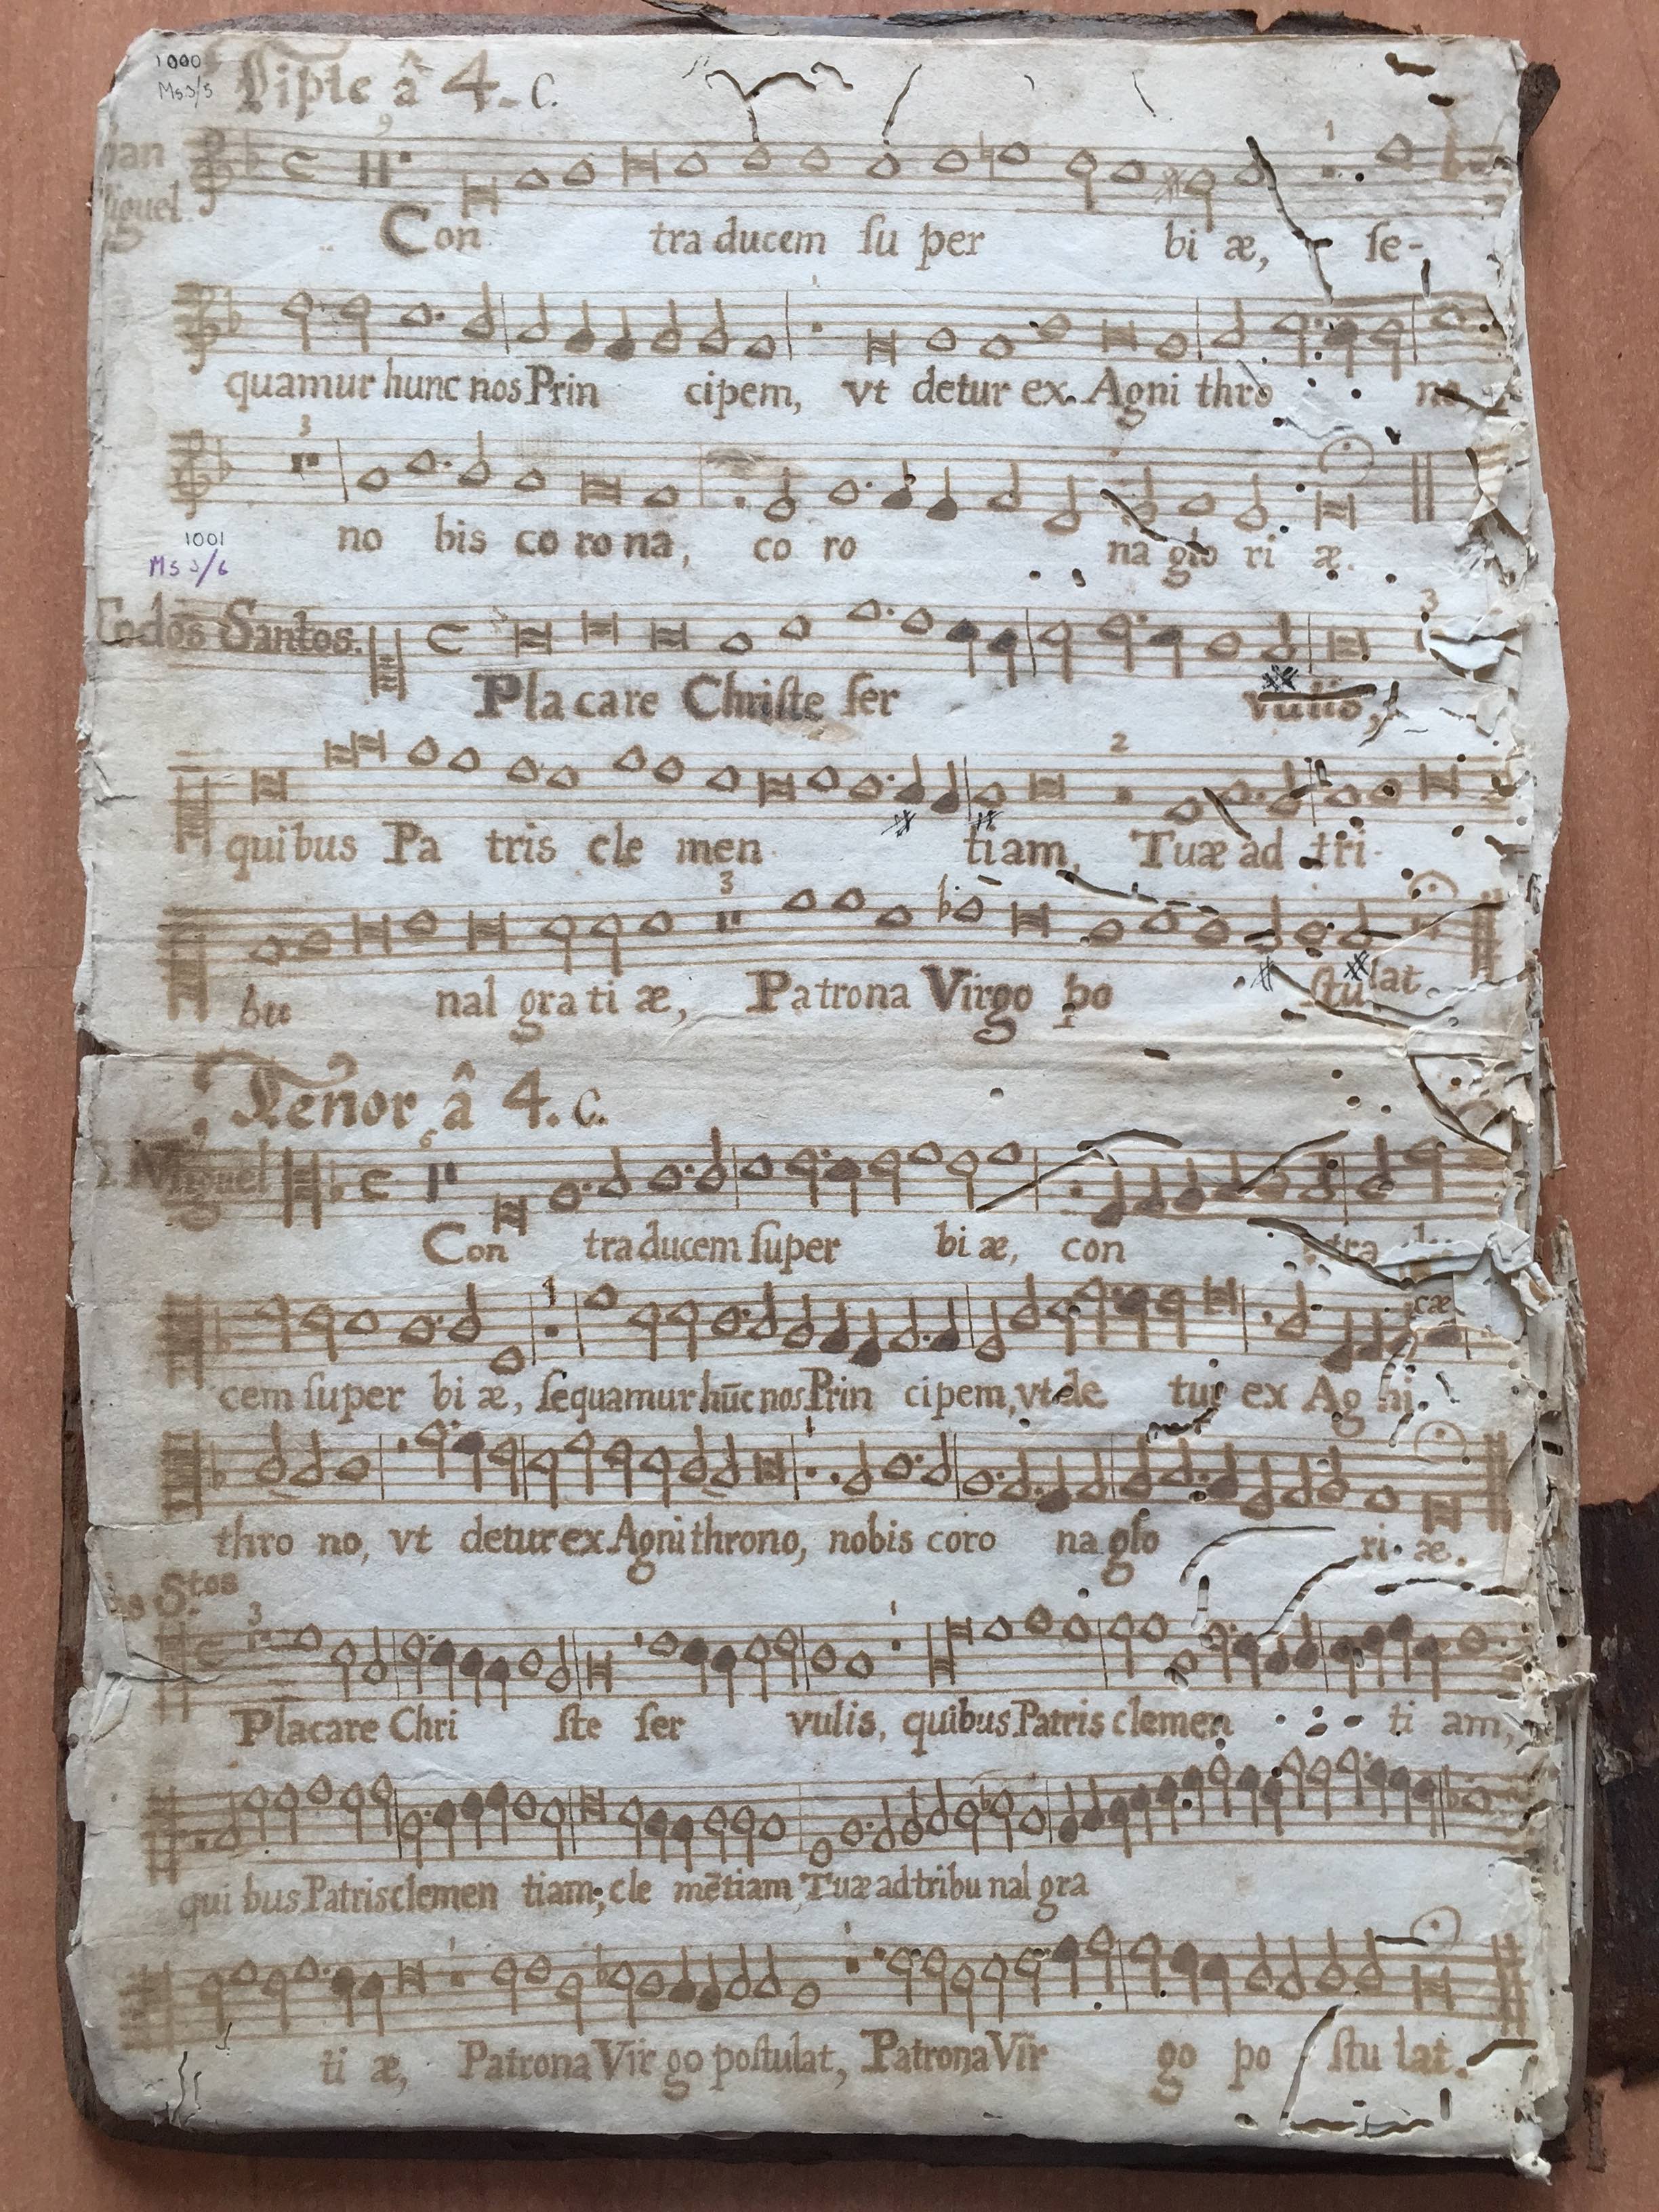 1000
Ms 3/5
Tiple â 4. C.
9
1
Miguel
Con tra ducem ſu per bi æ, ſe-
1
quamur hunc nos Prin cipem, vt detur ex Agni thro no,
3
no bis co ro na, co ro na glo ri æ.
1001
Ms 3/6
Todos Santos.
3
Pla care Chriſte ſer vulis,
2
quibus Pa tris cle men tiam, Tuæ ad tri-
3
bu nal gra ti æ, Patrona Virgo po ſtu lat.
Tenor â 4. C.
6
Miguel
Con tra ducem ſuper bi æ, con tra du
1
cem ſuper bi æ, ſequamur hūc nos Prin cipem, vt de tur ex Ag ni
1
thro no, vt detur ex Agni throno, nobis coro na glo ri æ.
Stos
3
1
Placare Chri ſte ſer vulis, quibus Patris clemen ti am,
qui bus Patris clemen tiam, cle mētiam, Tuæ ad tribu nal gra
1
1
ti æ, Patrona Vir go poſtulat, Patrona Vir go po ſtu lat.